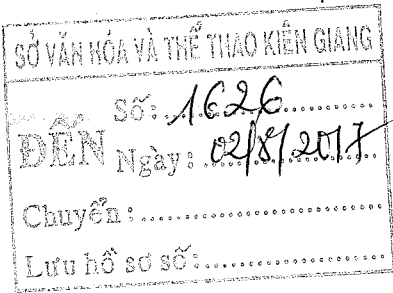 SỞ VĂN HÓA VÀ THỂ THAO KIÊN GIANG
ĐẾN
Số: 1626
Ngày: 02/8/2017
Chuyển:
Lưu hồ sơ số: